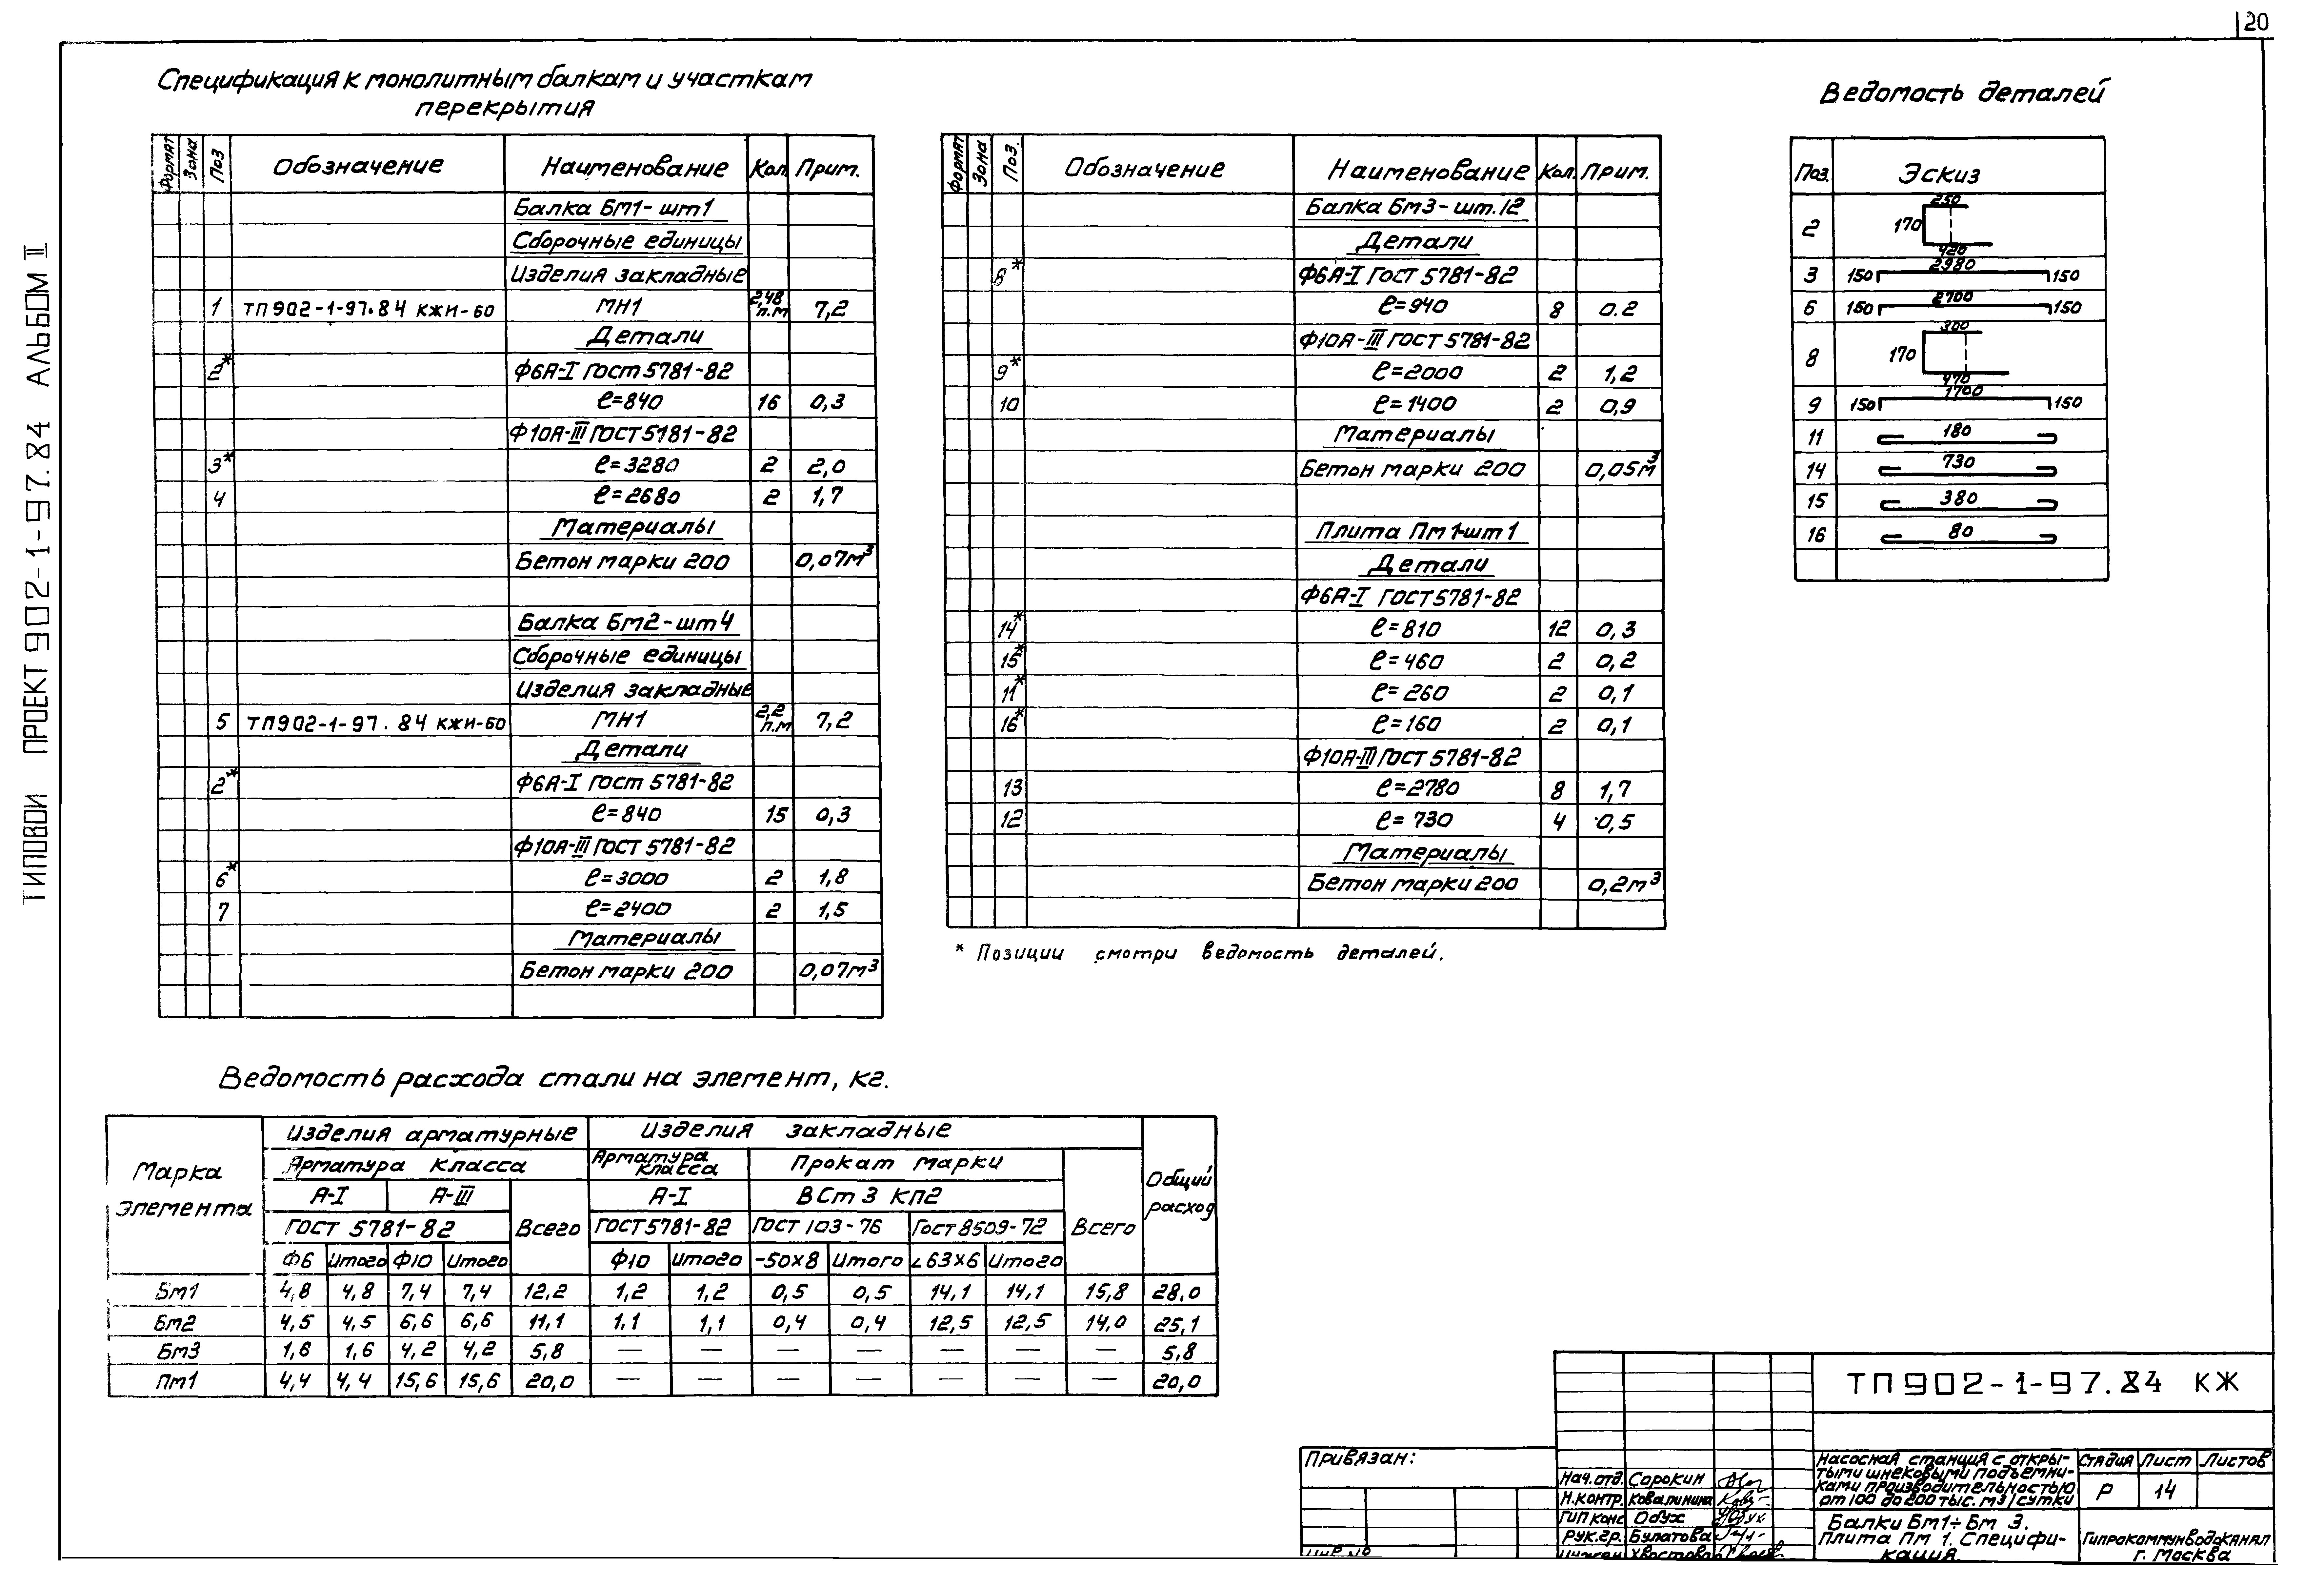 20
ТИПОВОЙ ПРОЕКТ 902-1-97.84 АЛЬБОМ II
Спецификация к монолитным балкам и участкам
перекрытия
Формат Зона Поз Обозначение Наименование Кол. Прим.
Балка Бм1- шт1
Сборочные единицы
Изделия закладные
1 ТП902-1-97.84 КЖИ-60 МН1 2,48 п.м 7,2
Детали
2* Ф6А-I ГОСТ 5781-82
ℓ=840 16 0,3
Ф10А-III ГОСТ 5781-82
3* ℓ=3280 2 2,0
4 ℓ=2680 2 1,7
Материалы
Бетон марки 200 0,07м³
Балка Бм2-шт4
Сборочные единицы
Изделия закладные
5 ТП902-1-97.84 КЖИ-60 МН1 2,2 п.м 7,2
Детали
2* Ф6А-I ГОСТ 5781-82
ℓ=840 15 0,3
Ф10А-III ГОСТ 5781-82
6* ℓ=3000 2 1,8
7 ℓ=2400 2 1,5
Материалы
Бетон марки 200 0,07м³
Формат Зона Поз. Обозначение Наименование Кол. Прим.
Балка Бм3-шт.12
Детали
8* Ф6А-I ГОСТ 5781-82
ℓ=940 8 0.2
Ф10А-III ГОСТ 5781-82
9* ℓ=2000 2 1,2
10 ℓ=1400 2 0,9
Материалы
Бетон марки 200 0,05м³
Плита Пм1-шт1
Детали
Ф6А-I ГОСТ 5781-82
14* ℓ=810 12 0,3
15* ℓ=460 2 0,2
11* ℓ=260 2 0,1
16* ℓ=160 2 0,1
Ф10А-III ГОСТ 5781-82
13 ℓ=2780 8 1,7
12 ℓ=730 4 0,5
Материалы
Бетон марки 200 0,2м³
* Позиции смотри ведомость деталей.
Ведомость деталей
Поз. Эскиз
2 250 170 420
3 150 2980 150
6 150 2700 150
8 300 170 470
9 150 1700 150
11 180
14 730
15 380
16 80
Ведомость расхода стали на элемент, кг.
Марка элемента Изделия арматурные Изделия закладные Общий расход
Арматура класса Арматура класса Прокат марки
А-I А-III Всего А-I ВСт 3 кп2 Всего
ГОСТ 5781-82 ГОСТ 5781-82 ГОСТ 103-76 ГОСТ 8509-72
Ф6 Итого Ф10 Итого Ф10 Итого -50×8 Итого ∠63×6 Итого
Бм1 4,8 4,8 7,4 7,4 12,2 1,2 1,2 0,5 0,5 14,1 14,1 15,8 28,0
Бм2 4,5 4,5 6,6 6,6 11,1 1,1 1,1 0,4 0,4 12,5 12,5 14,0 25,1
Бм3 1,6 1,6 4,2 4,2 5,8 — — — — — — — 5,8
Пм1 4,4 4,4 15,6 15,6 20,0 — — — — — — — 20,0
ТП 902-1-97.84 КЖ
Привязан:
Нач.отд. Сорокин
Н.контр. Ковалинина
ГИП конс Обух
Рук.гр. Булатова
Насосная станция с откры-
тыми шнековыми подъемни-
ками производительностью
от 100 до 200 тыс. м3/сутки
Стадия Лист Листов
Р 14
Балки Бм1÷Бм 3.
Плита Пм 1. Специфи-
кация.
Гипрокоммунводоканал
г. Москва